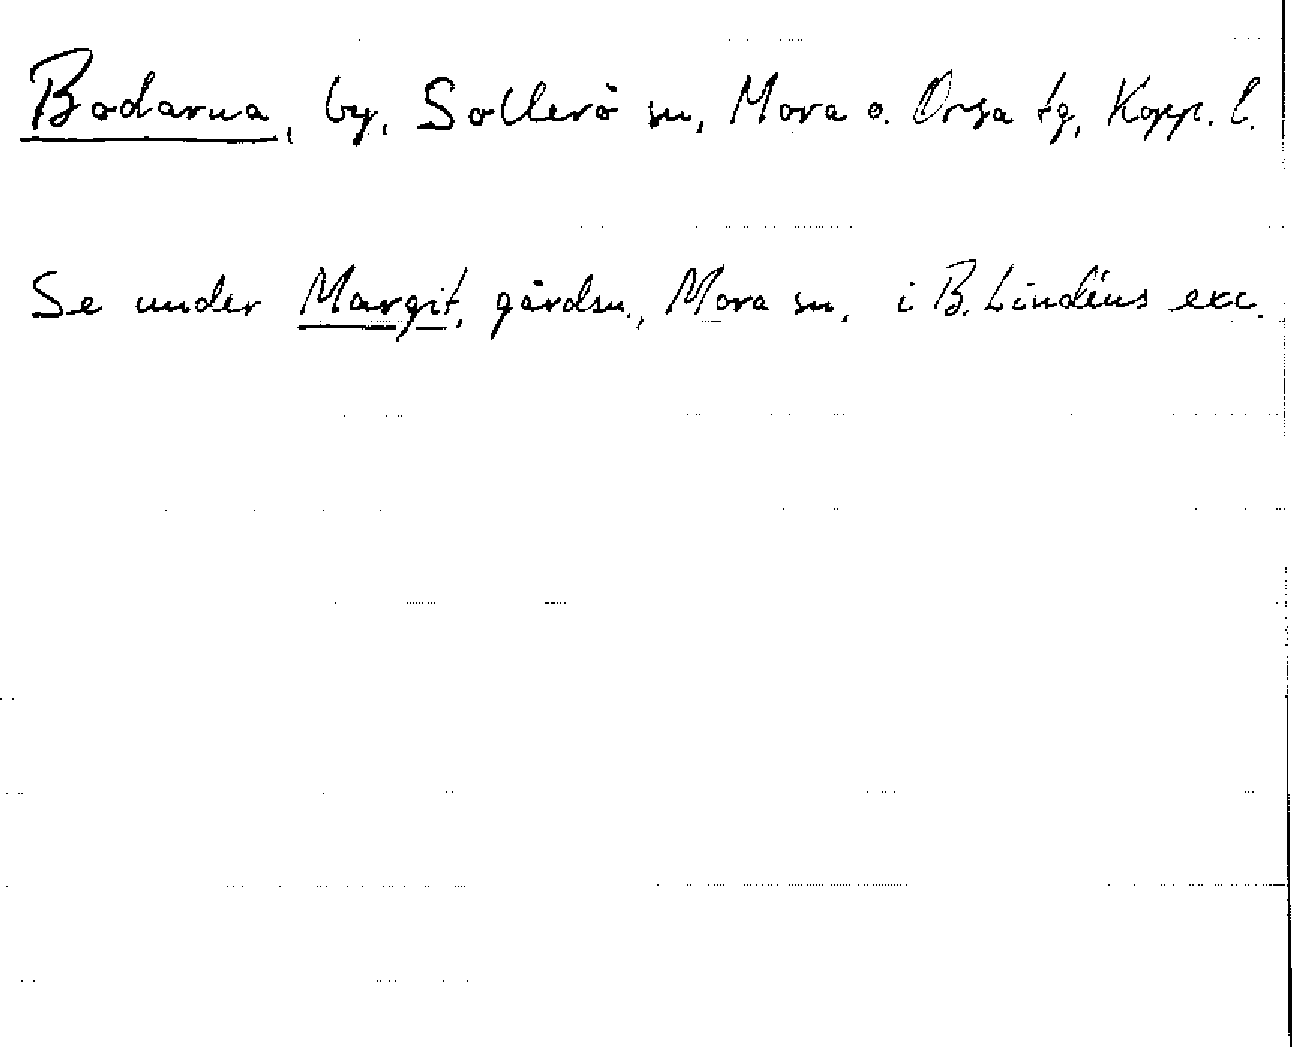 Bodarna, by, Sollerö sn, Mora o. Orsa tg, Kopp. l.
Se under Margit, gårdsn., Mora sn, i B. Lindéns exc.